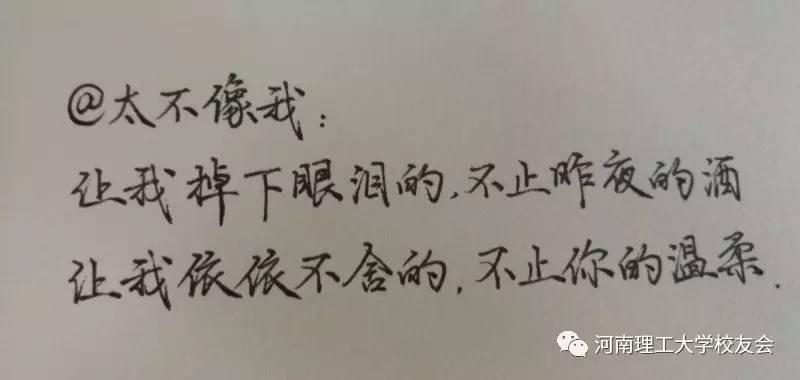 @太不像我：
让我掉下眼泪的,不止昨夜的酒
让我依依不舍的,不止你的温柔.
河南理工大学校友会